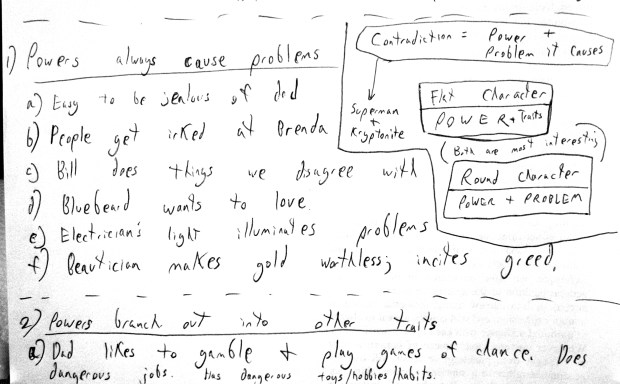 1) Powers always cause problems
a) Easy to be jealous of dad
b) People get irked at Brenda
c) Bill does things we disagree with
d) Bluebeard wants to love.
e) Electrician's light illuminates problems
f) Beautician makes gold worthless; incites greed.
Contradiction = Power +
Problem it causes
Superman
+
Kryptonite
Flat Character
POWER + Traits
(Both are most interesting)
Round Character
POWER + PROBLEM
2) Powers branch out into other traits
a) Dad likes to gamble + play games of chance. Does
dangerous jobs. Has dangerous toys/hobbies/habits.